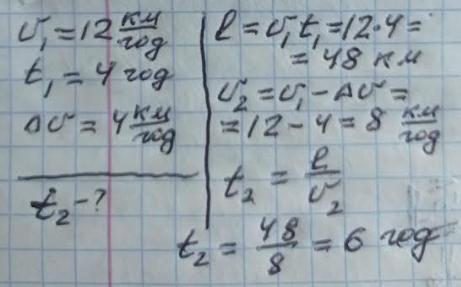 υ₁ = 12 км/год
t₁ = 4 год
Δυ = 4 км/год
t₂ - ?
l = υ₁t₁ = 12·4 =
= 48 км
υ₂ = υ₁ - Δυ =
= 12 - 4 = 8 км/год
t₂ = l/υ₂
t₂ = 48/8 = 6 год